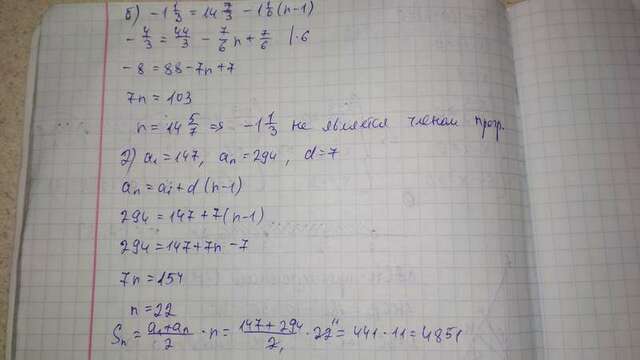 б) -1 1/3 = 14 7/3 - 1 1/6 (n-1)
- 4/3 = 44/3 - 7/6 n + 7/6 |·6
-8 = 88-7n+7
7n = 103
n = 14 5/7 => -1 1/3 не является членом прогр.
2) a₁=147, aₙ=294, d=7
aₙ=a₁+d(n-1)
294=147+7(n-1)
294=147+7n-7
7n=154
n=22
Sₙ = (a₁+aₙ)/2 · n = (147+294)/2₁ · 22¹¹ = 441·11=4851